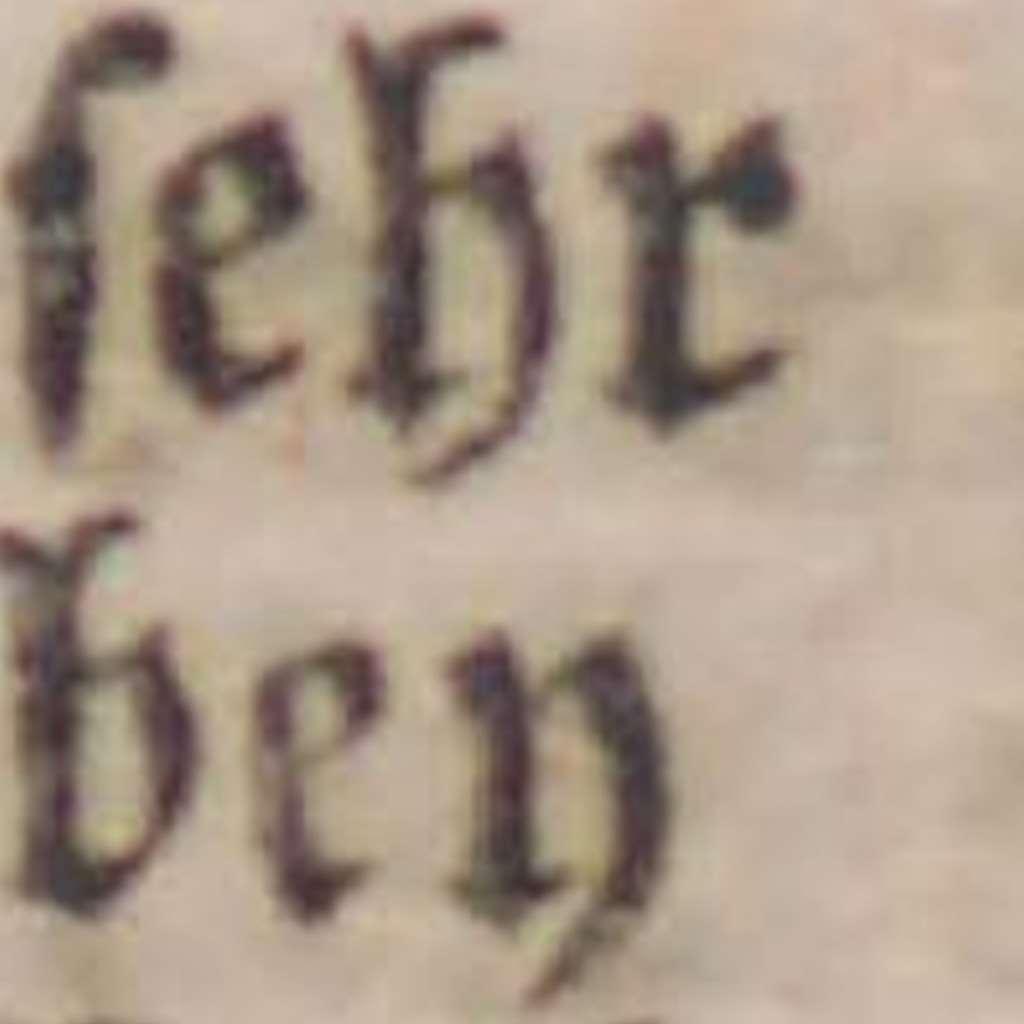 ſehr
ben